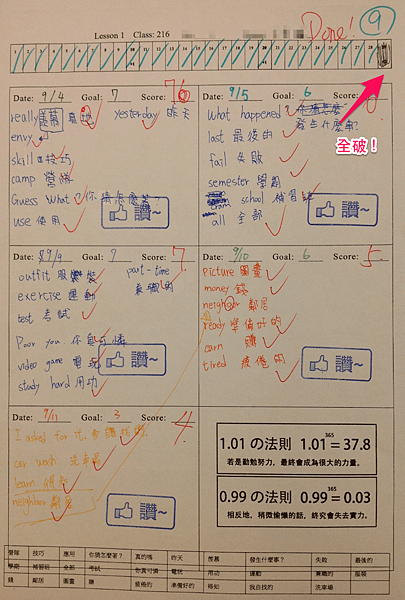 Done! 9
Lesson 1 Class: 216
全破!
Date: 9/4 Goal: 7 Score: 7
yesterday 昨天
really
envy
skill 技巧
camp 營隊
Guess What
use 使用
讚~
Date: 9/5 Goal: 6 Score: 6
What happened?
發生什麼事?
last 最後的
fail 失敗
semester 學期
cram school 補習班
all 全部
讚~
Date: 9/9 Goal: 7 Score: 7
outfit 服裝
part-time
兼職的
exercise 運動
test 考試
Poor you. 你真可憐
video game 電玩
study hard 用功
讚~
Date: 9/10 Goal: 6 Score: 5
picture 圖畫
money 錢
neighbor 鄰居
ready 準備好的
earn 賺
tired 疲倦的
讚~
Date: 9/11 Goal: 3 Score: 4
I asked for it.
car wash 洗車場
learn 得知
neighbor 鄰居
讚~
1.01 の法則 1.01^365 = 37.8
若是勤勉努力,最終會成為很大的力量。
0.99 の法則 0.99^365 = 0.03
相反地,稍微偷懶的話,終究會失去實力。
營隊 技巧 應用 你猜怎麼著? 真的嗎 昨天 羨慕 發生什麼事? 失敗 最後的
學期 補習班 全部 考試 你真可憐 電玩 用功 運動 兼職的 服裝
錢 鄰居 圖畫 賺 疲倦的 準備好的 得知 我自找的 洗車場